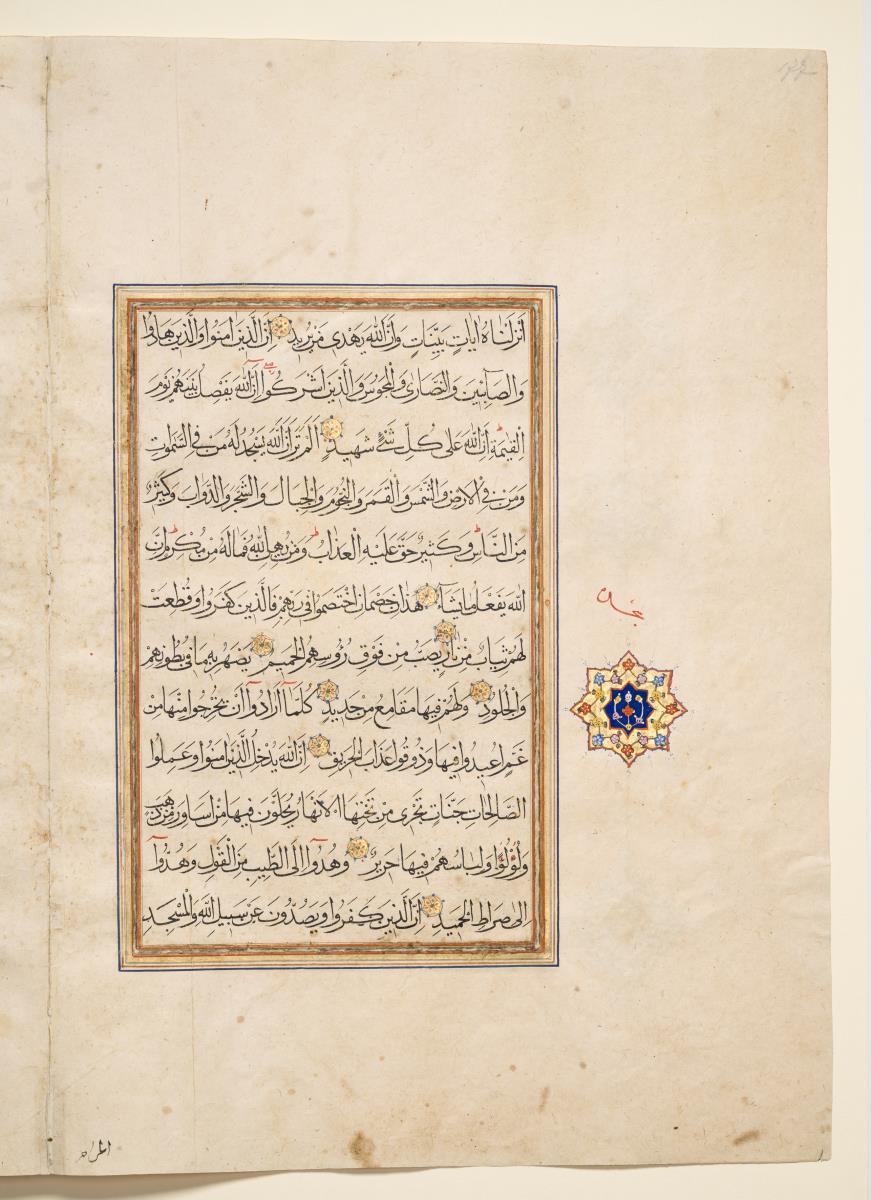 اَنْزَلْنَاهُ اٰيَاتٍ بَيِّنَاتٍ وَاَنَّ اللّٰهَ يَهْدِى مَنْ يُرِيدُ اِنَّ الَّذِينَ اٰمَنُوا وَالَّذِينَ هَادُوا
وَالصَّابِئِينَ وَالنَّصَارٰى وَالْمَجُوسَ وَالَّذِينَ اَشْرَكُوا اِنَّ اللّٰهَ يَفْصِلُ بَيْنَهُمْ يَوْمَ
الْقِيٰمَةِ اِنَّ اللّٰهَ عَلٰى كُلِّ شَئٍْ شَهِيدٌ اَلَمْ تَرَ اَنَّ اللّٰهَ يَسْجُدُ لَهُ مَنْ فِى السَّمٰوَاتِ
وَمَنْ فِى الْاَرْضِ وَالشَّمْسُ وَالْقَمَرُ وَالنُّجُومُ وَالْجِبَالُ وَالشَّجَرُ وَالدَّوَابُّ وَكَثِيرٌ
مِنَ النَّاسِ وَكَثِيرٌ حَقَّ عَلَيْهِ الْعَذَابُ وَمَنْ يُهِنِ اللّٰهُ فَمَا لَهُ مِنْ مُكْرِمٍ اِنَّ
اللّٰهَ يَفْعَلُ مَا يَشَاءُ هٰذَانِ خَصْمَانِ اخْتَصَمُوا فِى رَبِّهِمْ فَالَّذِينَ كَفَرُوا قُطِّعَتْ
لَهُمْ ثِيَابٌ مِنْ نَارٍ يُصَبُّ مِنْ فَوْقِ رُؤُوسِهِمُ الْحَمِيمُ يُصْهَرُ بِهِ مَا فِى بُطُونِهِمْ
وَالْجُلُودُ وَلَهُمْ فِيهَا مَقَامِعُ مِنْ حَدِيدٍ كُلَّمَا اَرَادُوا اَنْ يَخْرُجُوا مِنْهَا مِنْ
غَمٍّ اُعِيدُوا فِيهَا وَذُوقُوا عَذَابَ الْحَرِيقِ اِنَّ اللّٰهَ يُدْخِلُ الَّذِينَ اٰمَنُوا وَعَمِلُوا
الصَّالِحَاتِ جَنَّاتٍ تَجْرِى مِنْ تَحْتِهَا الْاَنْهَارُ يُحَلَّوْنَ فِيهَا مِنْ اَسَاوِرَ مِنْ ذَهَبٍ
وَلُؤْلُؤًا وَلِبَاسُهُمْ فِيهَا حَرِيرٌ وَهُدُوا اِلَى الطَّيِّبِ مِنَ الْقَوْلِ وَهُدُوا
اِلٰى صِرَاطِ الْحَمِيدِ اِنَّ الَّذِينَ كَفَرُوا وَيَصُدُّونَ عَنْ سَبِيلِ اللّٰهِ وَالْمَسْجِدِ
الحرام